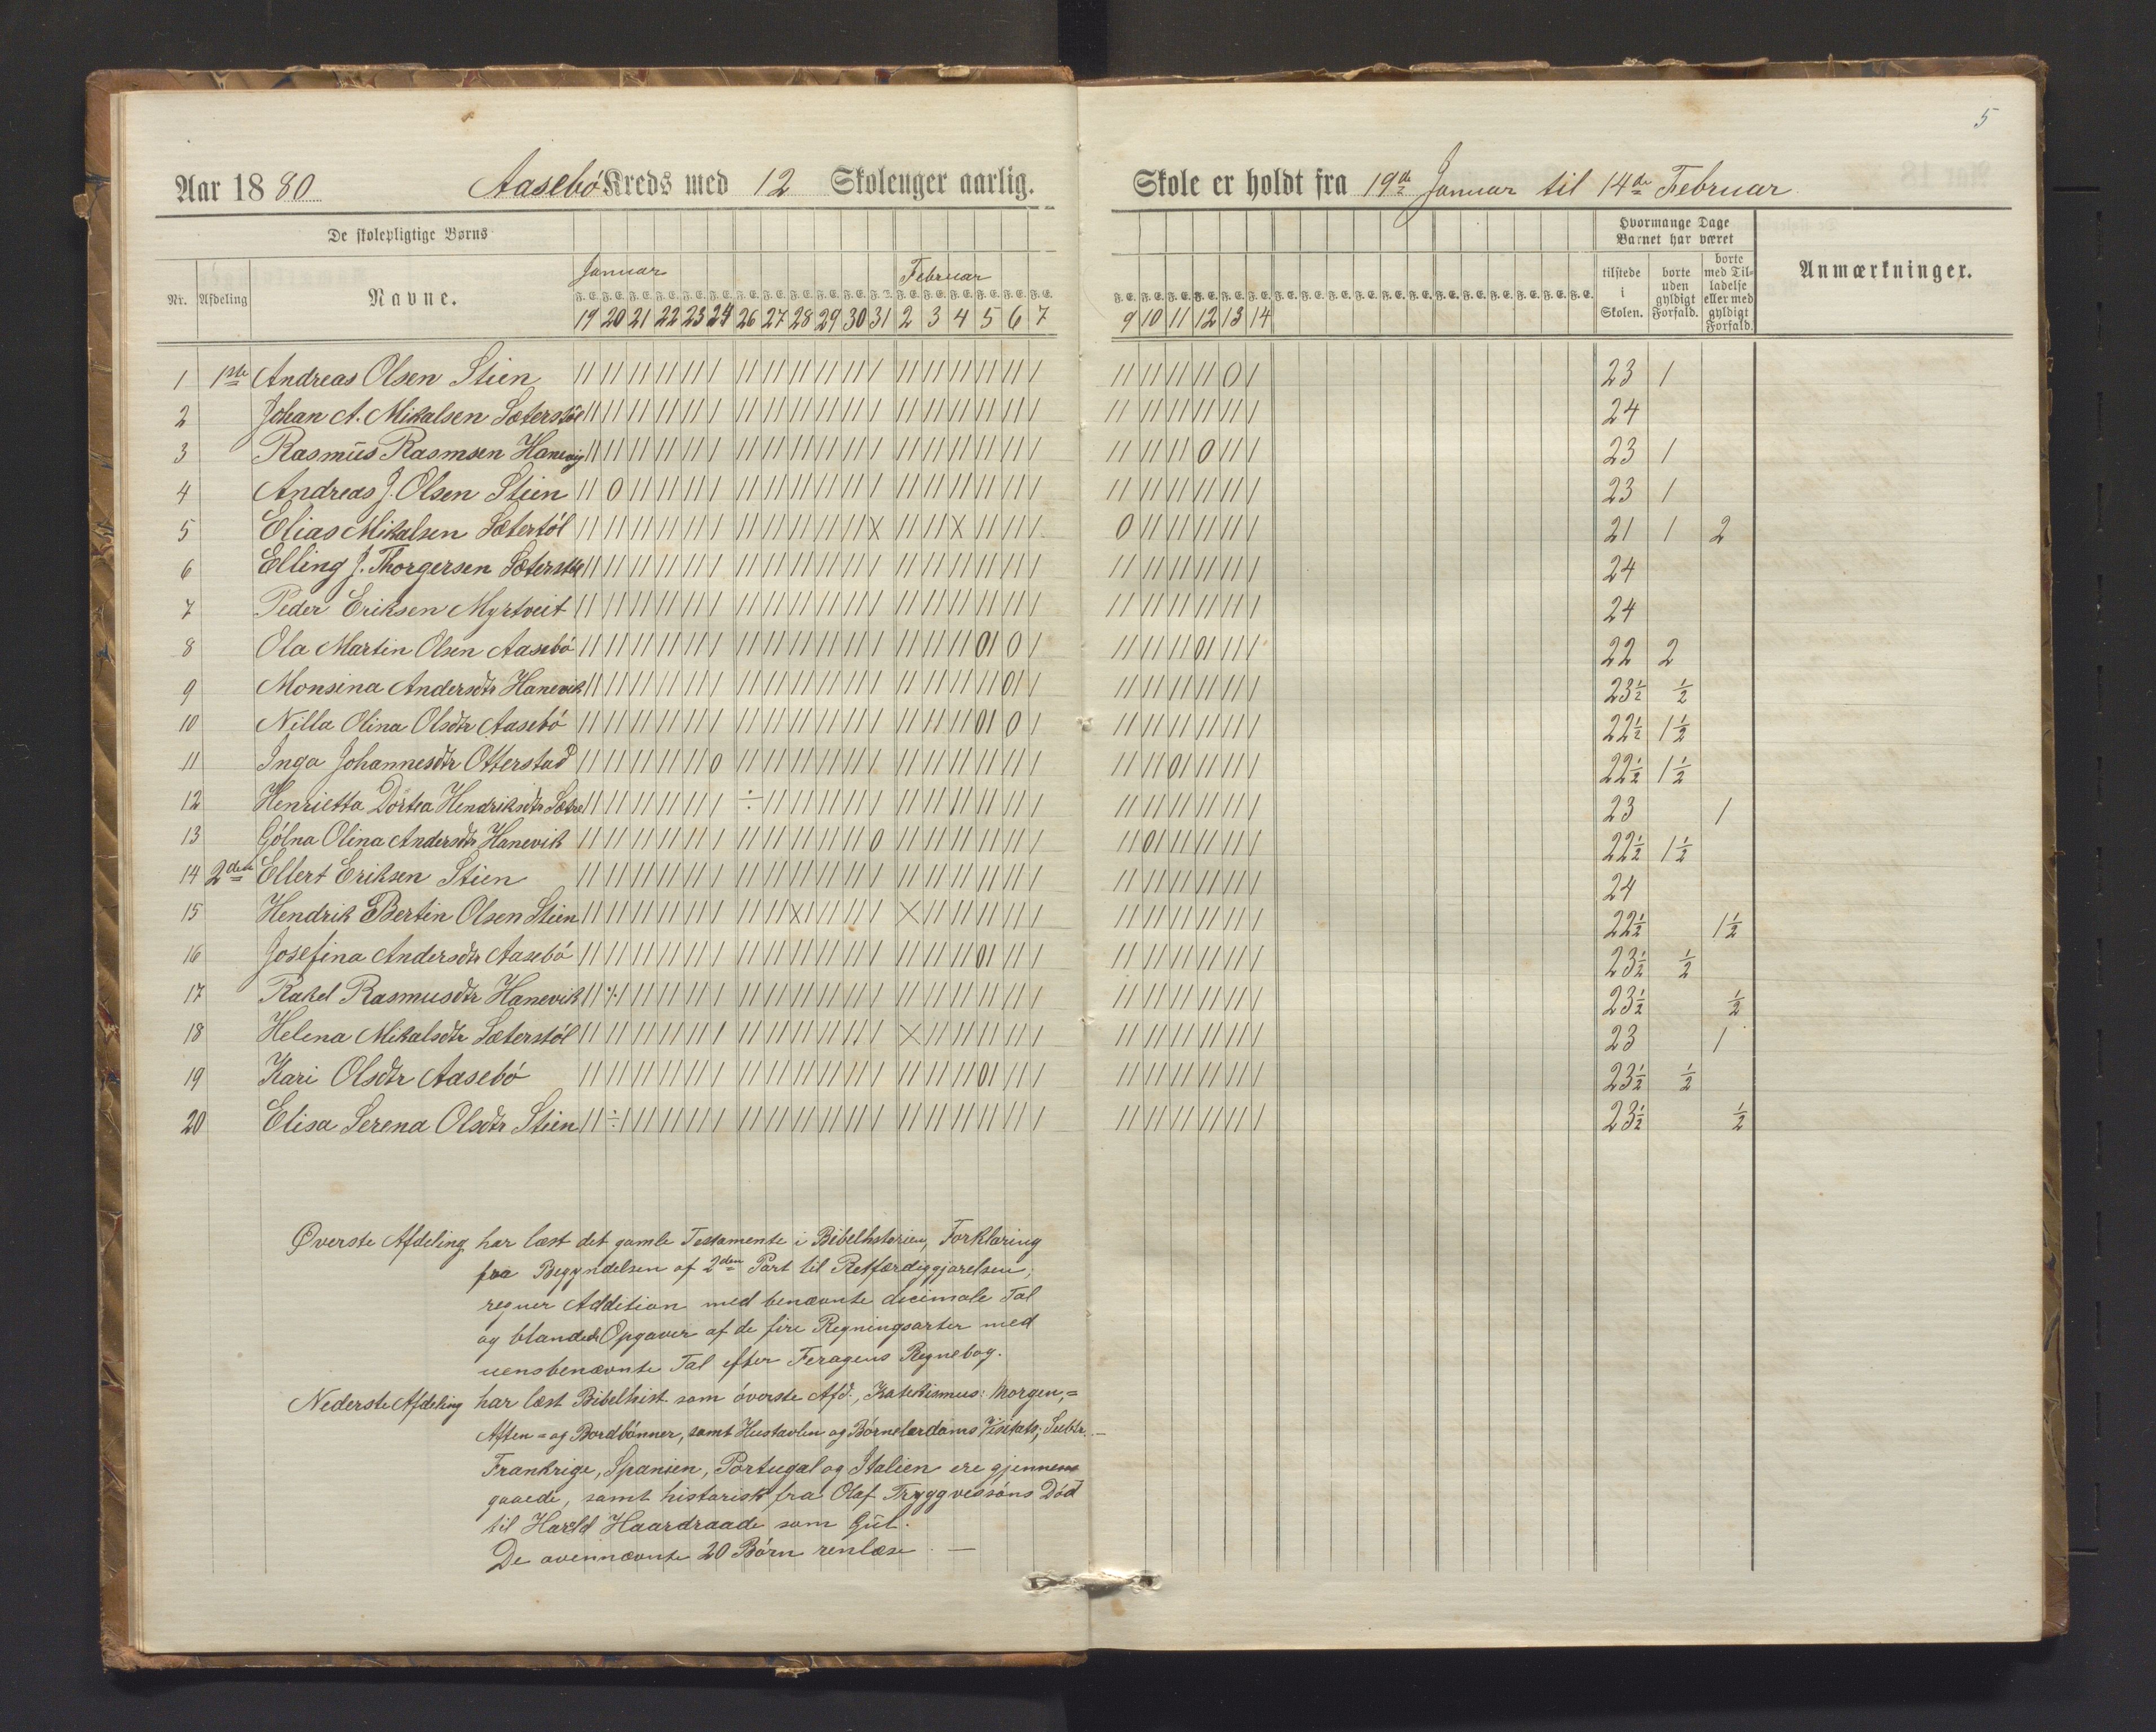 5
Aar 1880 Aasebö Kreds med 12 Skoleuger aarlig. Skole er holdt fra 19de Januar til 14de Februar
De skolepligtige Børns
Hvormange Dage Barnet har været
Nr. Afdeling Navne. Januar Februar
tilstede i Skolen. borte uden gyldigt Forfald. borte med Tilladelse eller med gyldigt Forfald. Anmærkninger.
19 20 21 22 23 24 26 27 28 29 30 31 2 3 4 5 6 7 9 10 11 12 13 14
1 1ste Andreas Olsen Stien 23 1
2 Johan A. Mikalsen Sæterstöl 24
3 Rasmus Rasmsen Hanevig 23 1
4 Andreas J. Olsen Stien 23 1
5 Elias Mikalsen Sætertöl 21 1 2
6 Elling J. Thorgersen Sæterstöl 24
7 Peder Eriksen Myrtveit 24
8 Ola Martin Olsen Aasebö 22 2
9 Monsina Andersdtr Hanevik 23½ ½
10 Nilla Olina Olsdtr Aasebö 22½ 1½
11 Inga Johannesdtr Otterstad 22½ 1½
12 Henrietta Dörtea Hendriksdtr Sætre 23 1
13 Gölna Olina Andersdtr Hanevik 22½ 1½
14 2den Ellert Eriksen Stien 24
15 Hendrik Bertin Olsen Stien 22½ 1½
16 Josefina Andersdtr Aasebö 23½ ½
17 Rakel Rasmusdtr Hanevik 23½ ½
18 Helena Mikalsdtr Sæterstöl 23 1
19 Kari Olsdtr Aasebö 23½ ½
20 Elisa Serena Olsdtr Stien 23½ ½
Øverste Afdeling har læst det gamle Testamente i Bibelhistorien, Forklaring
fra Begyndelsen af 2den Part til Retfærdiggjørelsen;
regner Addition med benævnte dicimale Tal
og blandede Opgaver af de fire Regningsarter med
uensbenævnte Tal efter Feragens Regnebog.
Nederste Afdeling har læst Bibelhist. som överste Afd., Katekismus: Morgen,=
Aften= og Bordbönner, samt Hustavlen og Börnelærdoms Visitats; Subtr. —
Frankrige, Spanien, Portugal og Italien ere gjennem
gaaede, samt historisk fra Olaf Tryggvessöns Död
til Harald Haardraade som Gut.
De ovennævnte 20 Börn renlæse. —